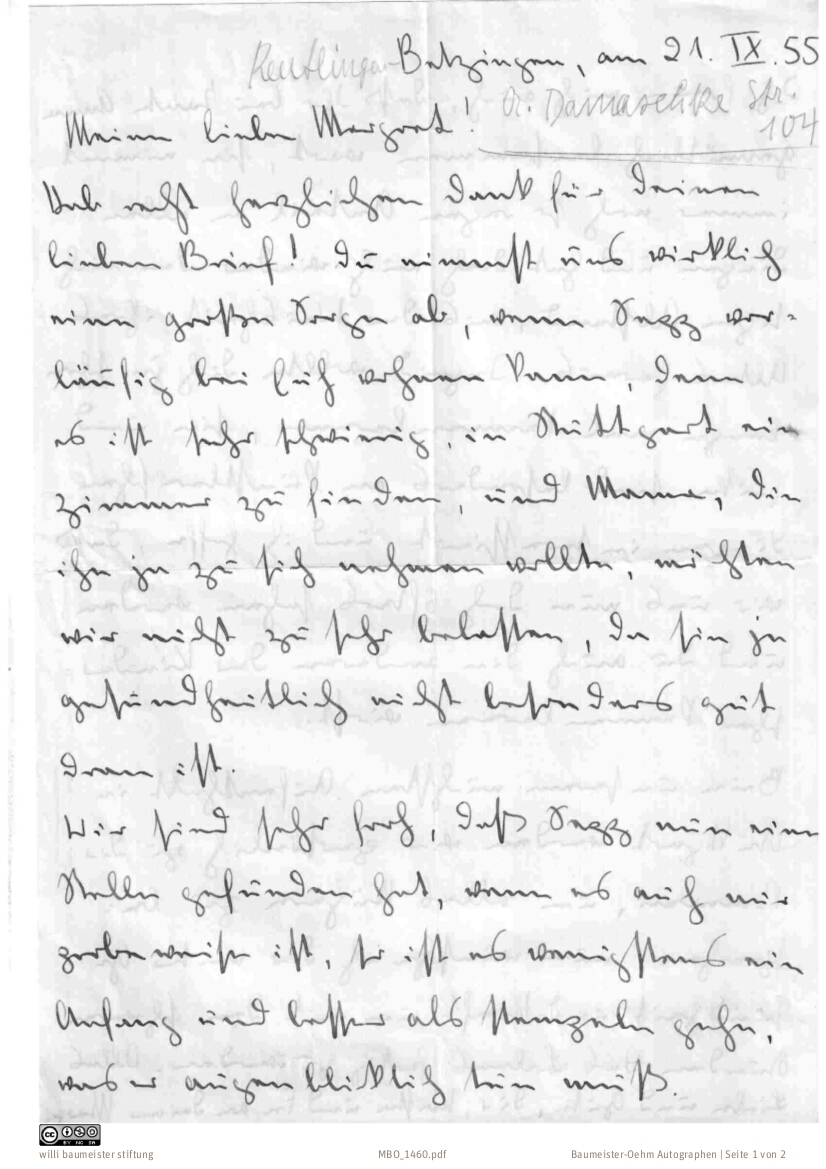 Reutlingen- Betzingen, am 21. IX. 55
A. Damaschke Str.
104
Meine liebe Margret!
Hab recht herzlichen Dank für Deinen
lieben Brief! Du nimmst uns wirklich
eine große Sorge ab, wenn Sepp vor-
läufig bei Euch wohnen kann, denn
es ist sehr schwierig, in Stuttgart ein
Zimmer zu finden, und Mama, die
ihn ja zu sich nehmen wollte, möchten
wir nicht zu sehr belasten, da sie ja
gesundheitlich nicht besonders gut
dran ist.
Wir sind sehr froh, daß Sepp nun eine
Stelle gefunden hat, wenn es auch nur
probeweise ist, so ist es wenigstens ein
Anfang und besser als stempeln gehn,
was er augenblicklich tun muß.
CC BY NC SA
willi baumeister stiftung MBO_1460.pdf Baumeister-Oehm Autographen | Seite 1 von 2